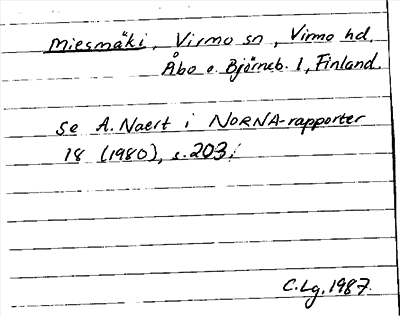 Miesmäki, Virmo sn, Virmo hd,
Åbo o. Björneb. l, Finland.
se A. Naert i NORNA-rapporter
18 (1980), s. 203.
C.Lg. 1987.